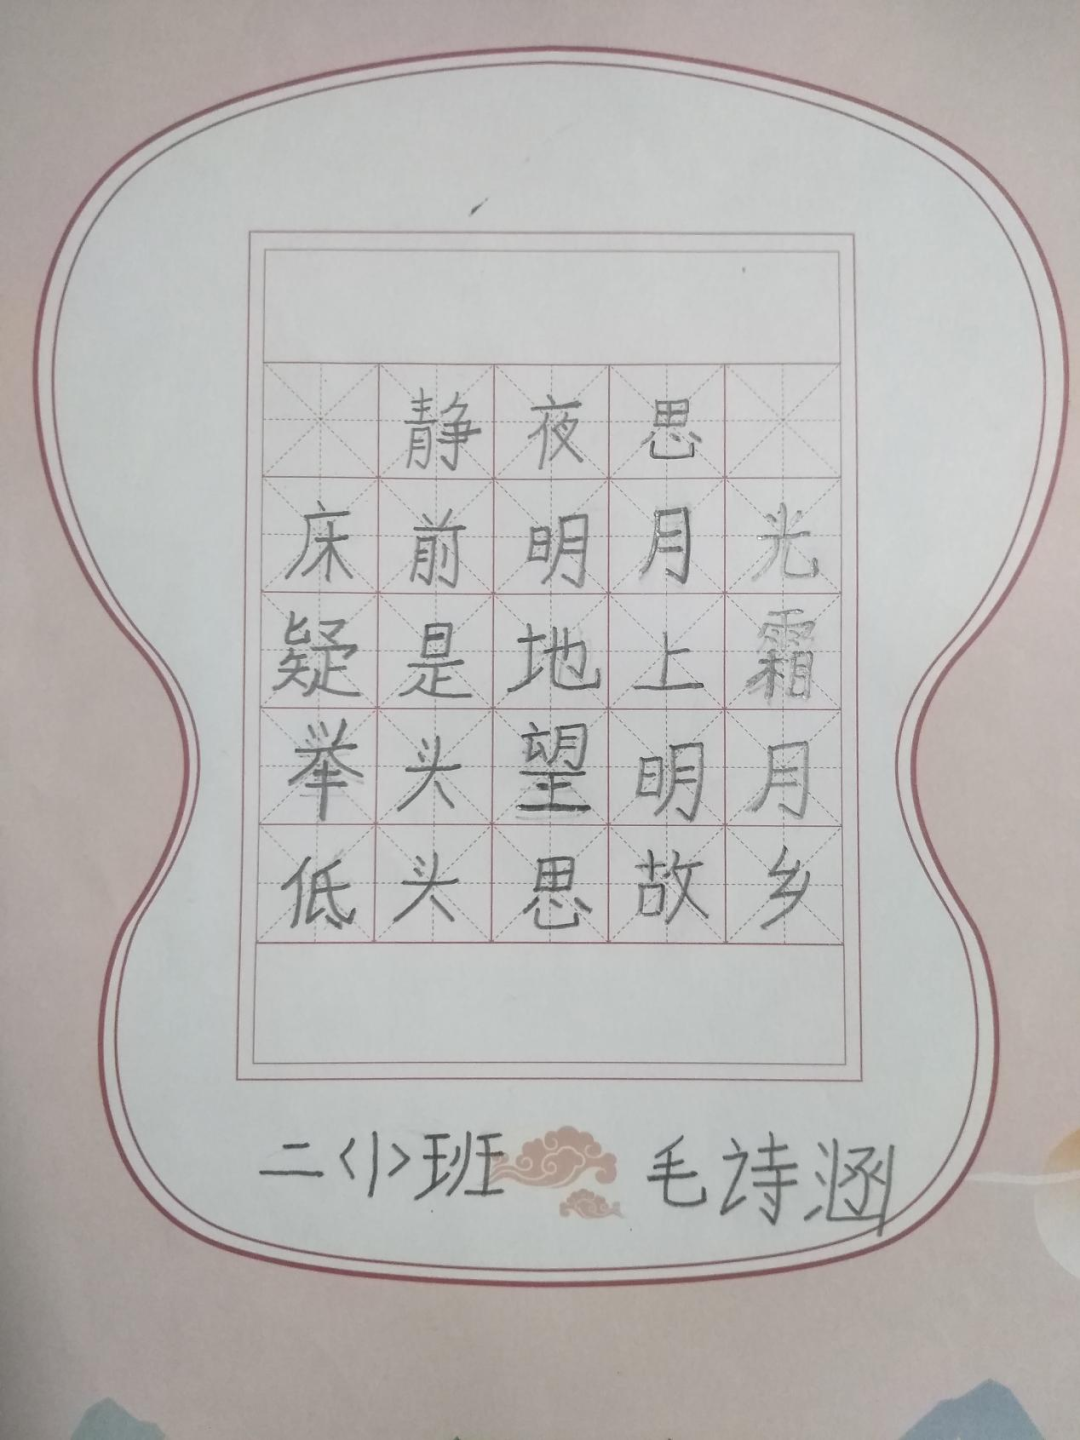 静夜思
床前明月光
疑是地上霜
举头望明月
低头思故乡
二〈1〉班 毛诗涵